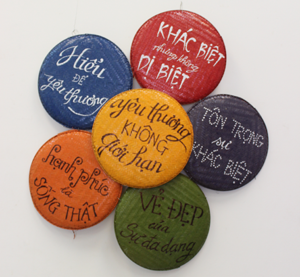 Hiểu
ĐỂ
yêu thương
KHÁC BIỆT
nhưng không
DỊ BIỆT
yêu thương
KHÔNG
giới hạn
TÔN TRỌNG
sự
KHÁC BIỆT
hạnh phúc
là
SỐNG THẬT
VẺ ĐẸP
của
Sự đa dạng